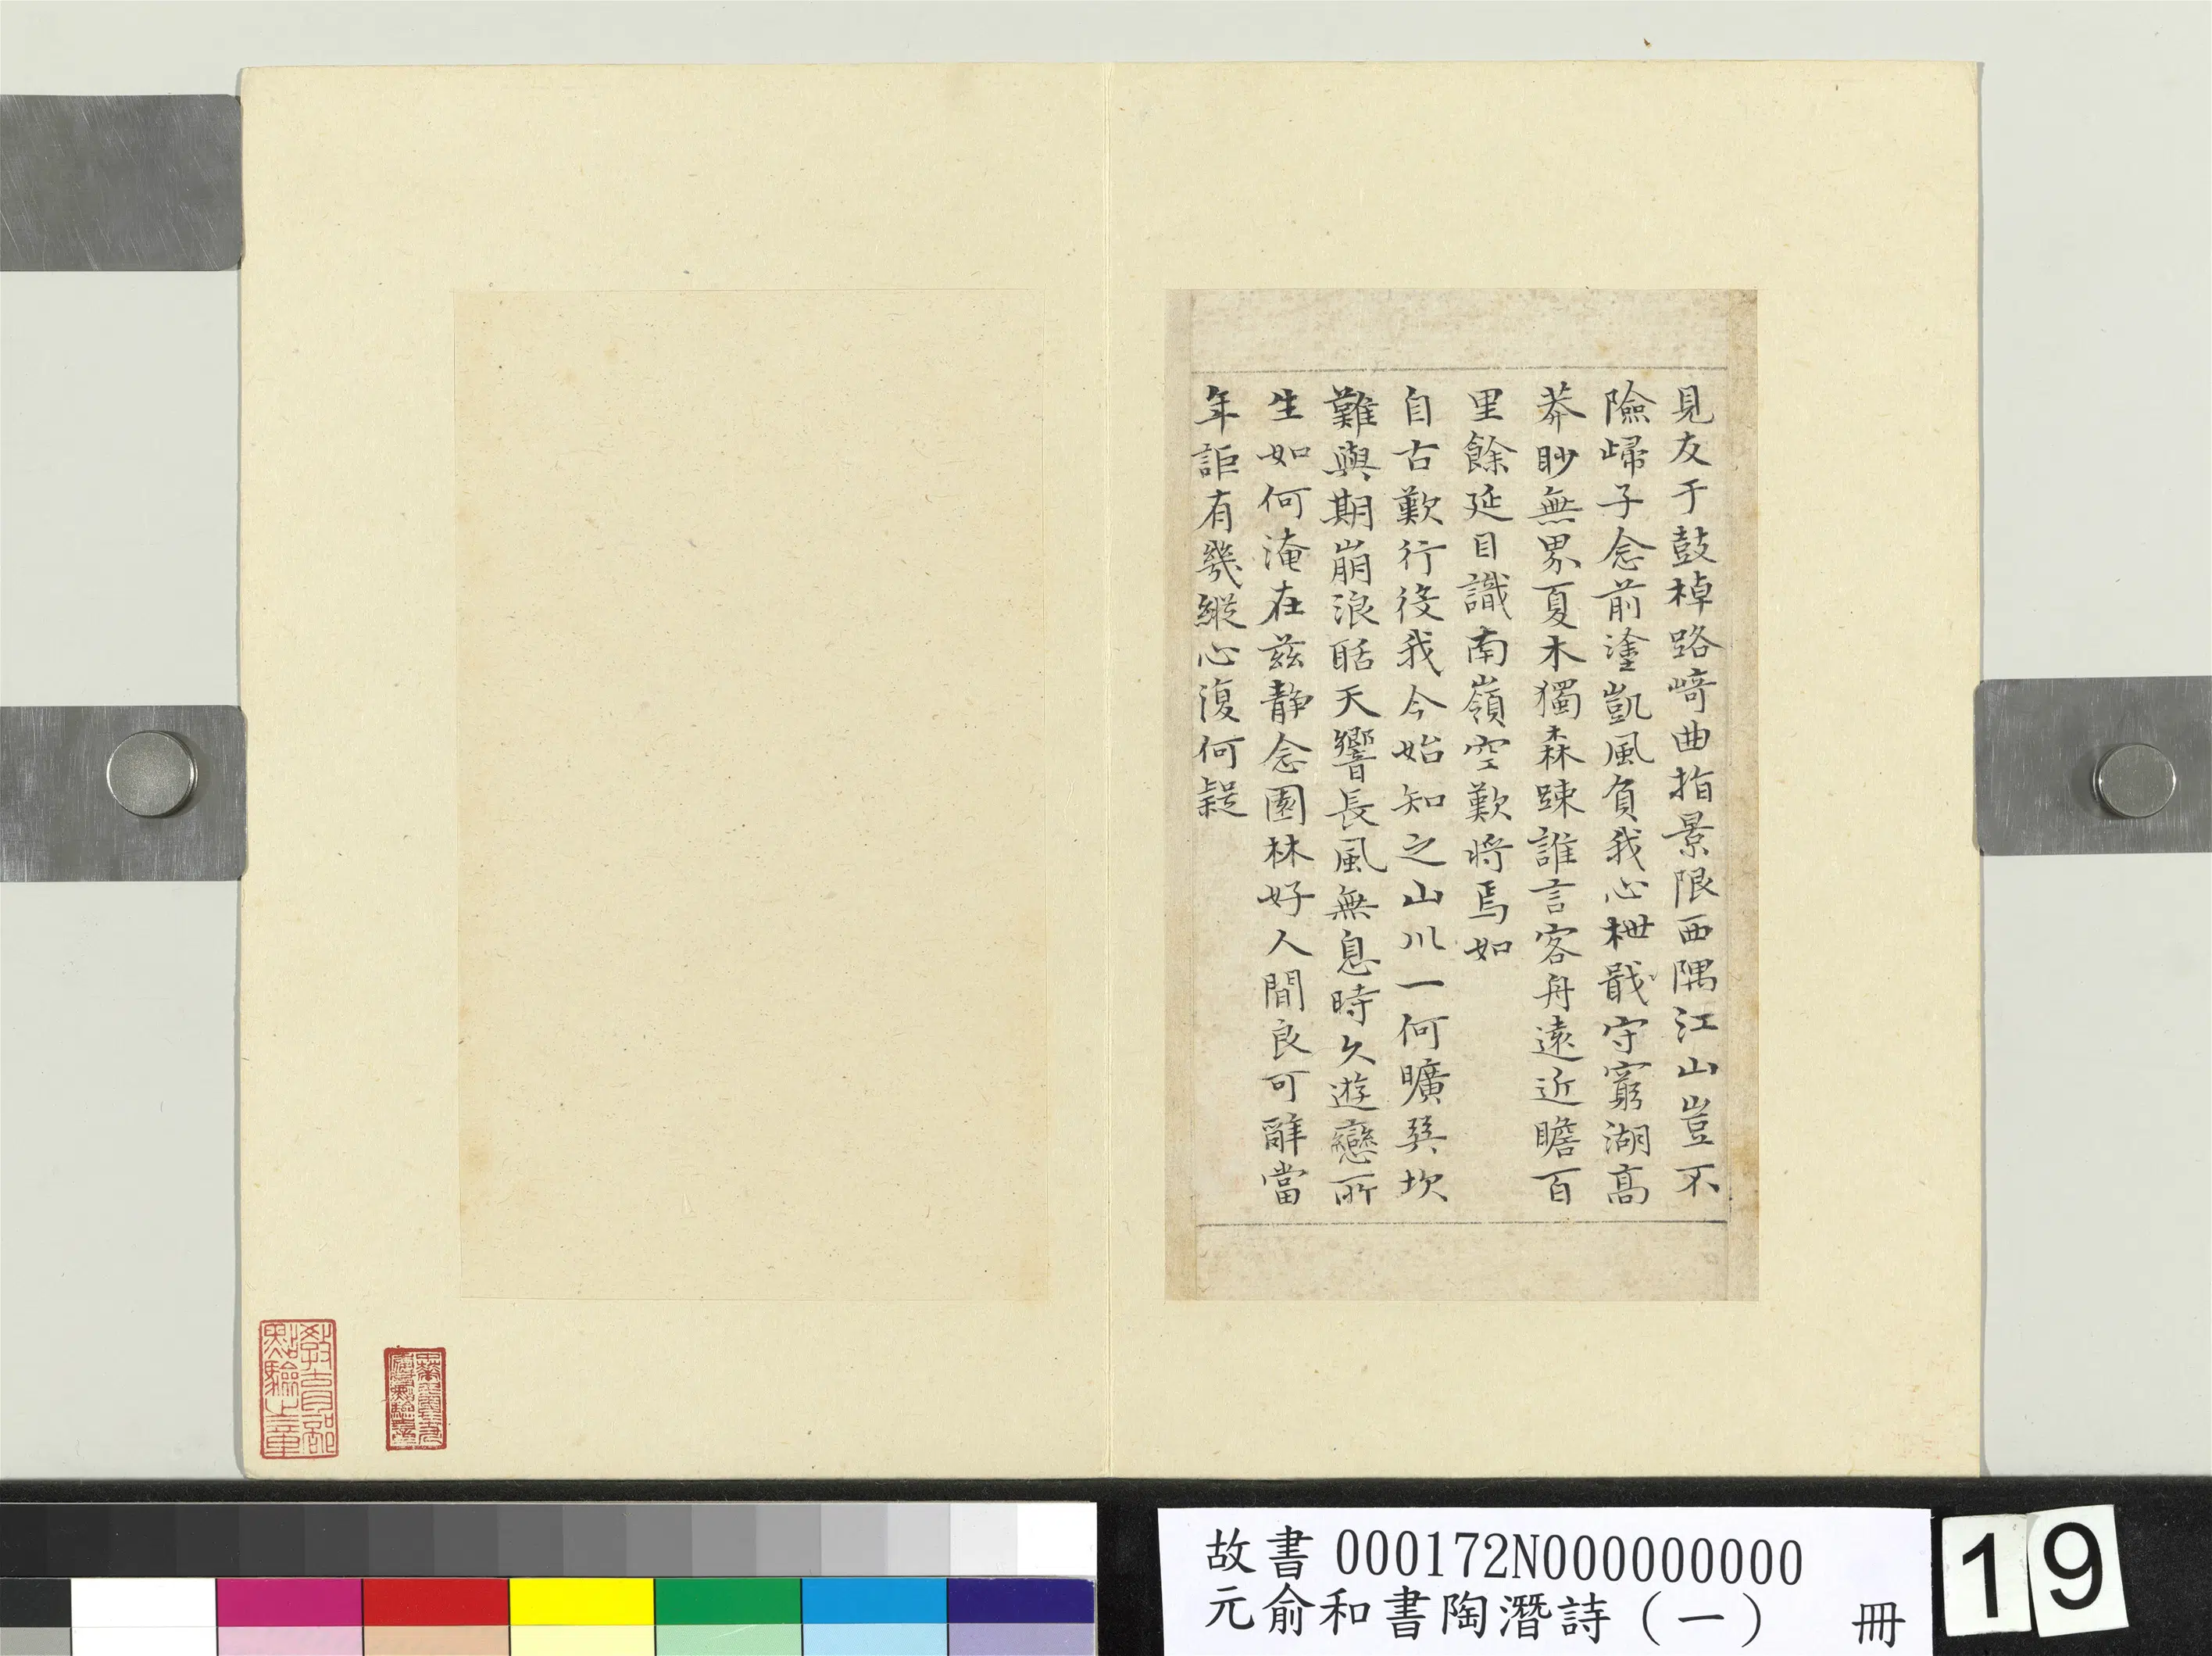 見友于鼓棹路﨑曲指景限西隅江山豈不
險歸子念前塗凱風負我心枻戢守窮湖高
莽眇無界夏木獨森踈誰言客舟遠近瞻百
里餘延目識南嶺空歎將焉如
自古歎行役我今始知之山川一何曠巽坎
難與期崩浪聒天響長風無息時久遊戀所
生如何淹在茲靜念園林好人間良可辭當
年詎有幾縱心復何疑
教育部
點驗之章
故書000172N000000000
元俞和書陶潛詩（一） 冊
19